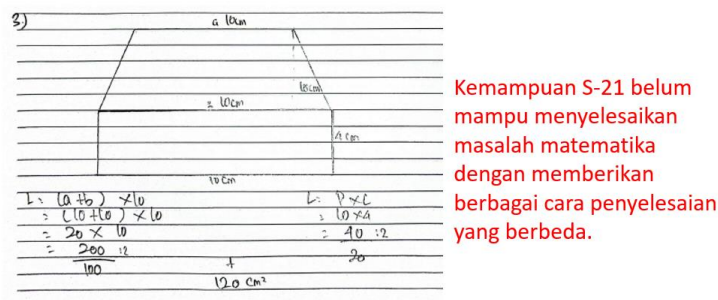 3.)
a 10cm
10cm
= 10cm
4 cm
10 cm
L = (a+b) × 10
= (10+10) × 10
= 20 × 10
= 200 :2
100
L = P×L
= 10×4
= 40 :2
20
+
120 cm²
Kemampuan S-21 belum
mampu menyelesaikan
masalah matematika
dengan memberikan
berbagai cara penyelesaian
yang berbeda.